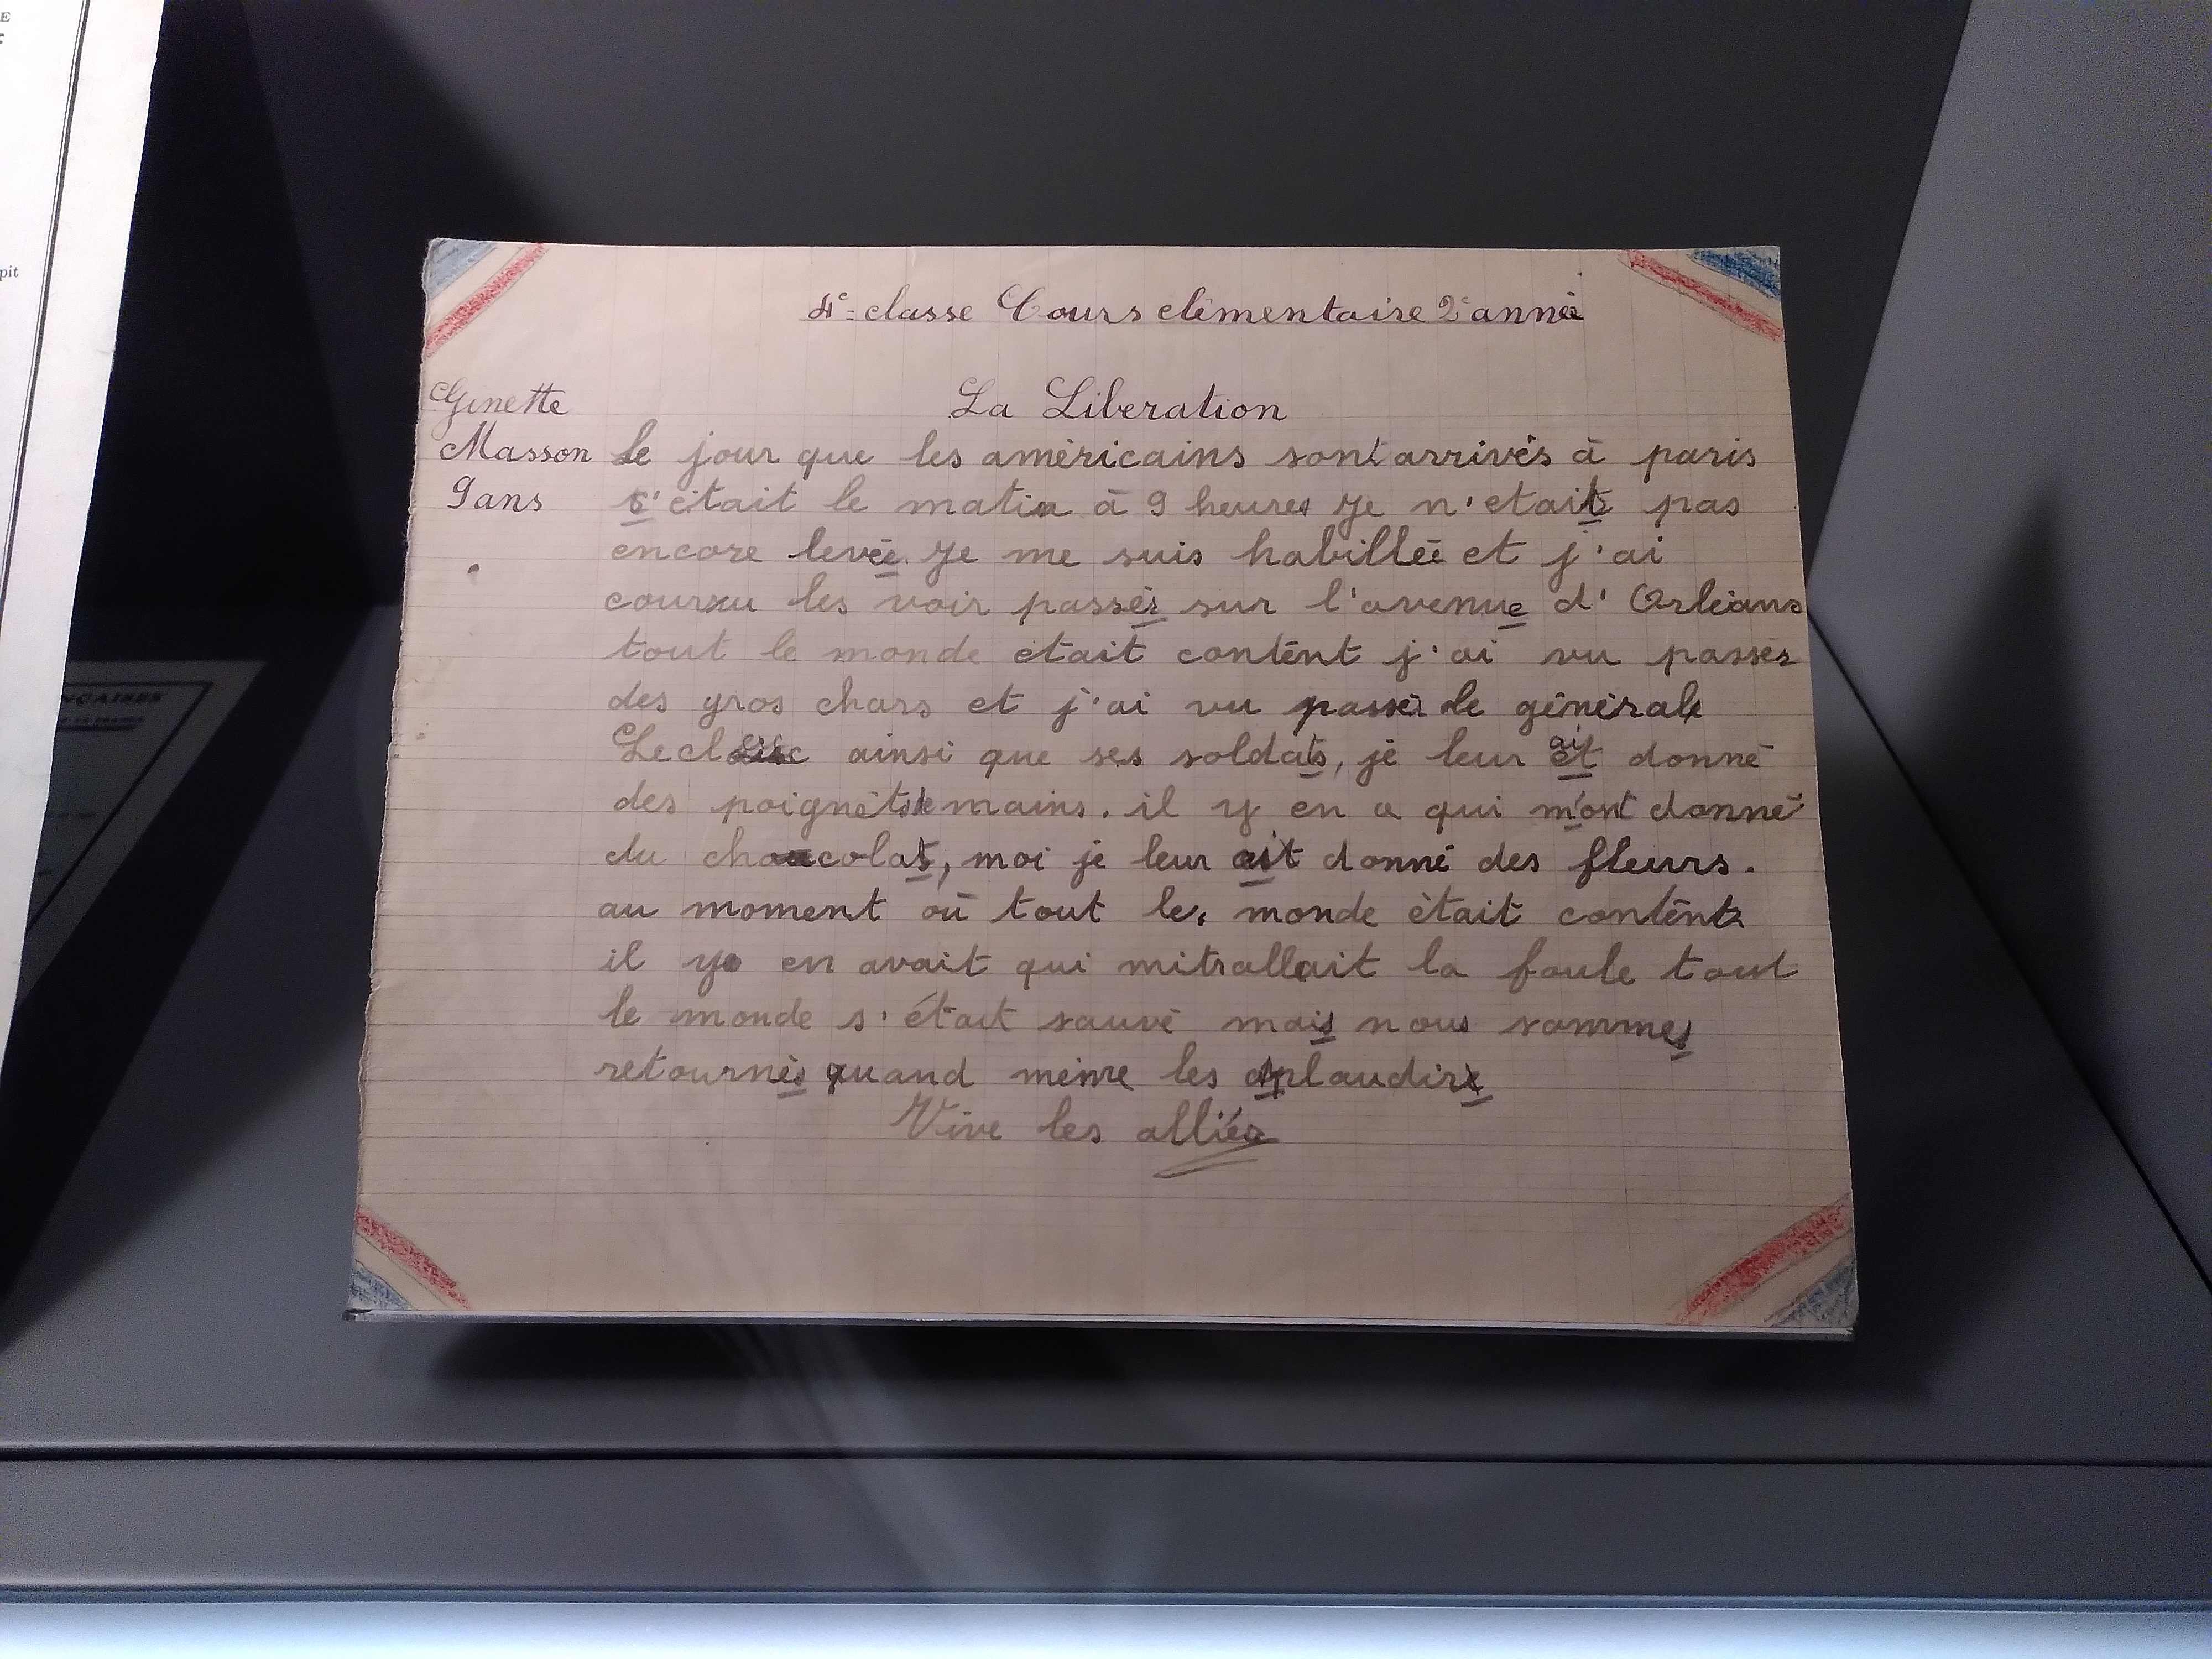 E
F
pit
NÇAISES
4e classe Cours élémentaire 2e année
Ginette
Masson
9 ans
La Libération
Le jour que les américains sont arrivés à paris
c'était le matin à 9 heures Je n'etait pas
encore levée. Je me suis habillée et j'ai
courru les voir passés sur l'avenue d'Orléans
tout le monde était contênt j'ai vu passés
des gros chars et j'ai vu passés le générale
Leclerc ainsi que ses soldats, je leur ai donné
des poignèts de mains. il y en a qui m'ont donné
du chocolat, moi je leur ait donné des fleurs.
au moment où tout le monde était contênt
il y en avait qui mitrallait la foule tout
le monde s'était sauvé mais nous sommes
retournés quand même les applaudir
Vive les alliés